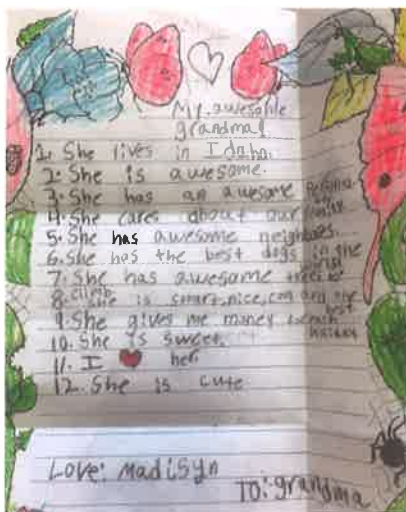 My awesome
grandma!
1. She lives in Idaho.
2. She is awesome.
3. She has an awesome
4. She cares about our family.
5. She has awesome neighbors.
6. She has the best dogs in the
world
7. She has awesome trees to
climb
8. She is smart, nice, and the
best
9. She gives me money each
holiday
10. She is sweet.
11. I ❤ her
12. She is cute
Love: Madisyn
TO: grandma